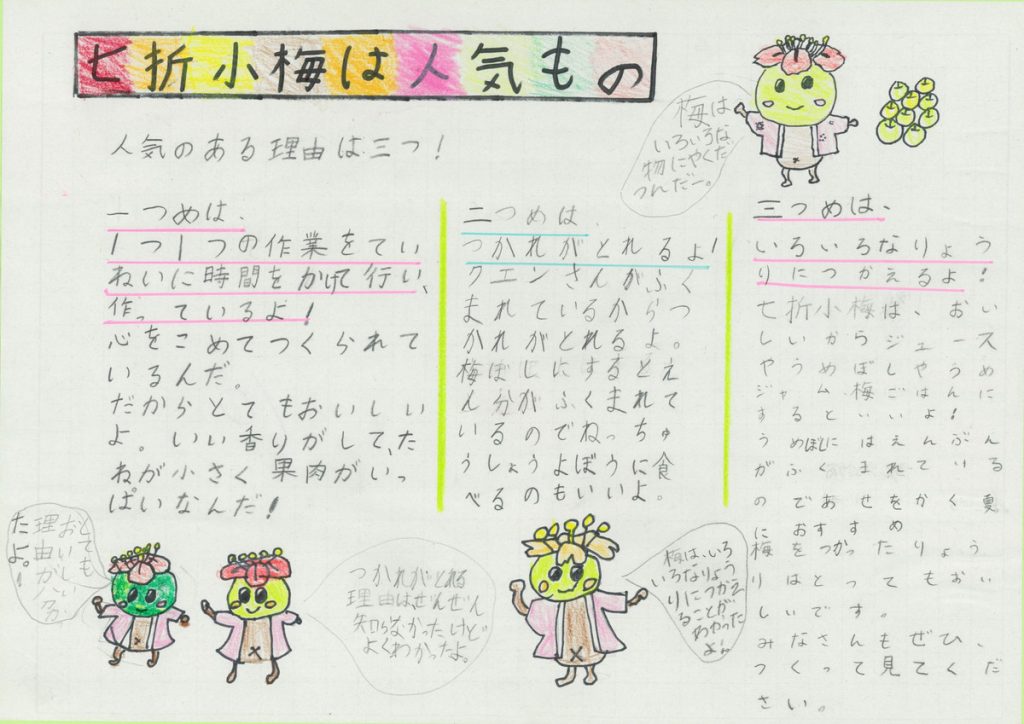 七折小梅は人気もの
人気のある理由は三つ！
梅は
いろいろな
物にやくだ
つんだー。
一つめは、
1つ1つの作業をてい
ねいに時間をかけて行い、
作っているよ！
心をこめてつくられて
いるんだ。
だからとてもおいしい
よ。いい香りがして、た
ねが小さく果肉がいっ
ぱいなんだ！
二つめは
つかれがとれるよ！
クエンさんがふく
まれているからつ
かれがとれるよ。
梅ぼしにするとえ
ん分がふくまれて
いるのでねっちゅ
うしょうよぼうに食
べるのもいいよ。
三つめは、
いろいろなりょう
りにつかえるよ！
七折小梅は、おい
しいからジュース
やうめぼしやうめ
ジャム梅ごはんに
するといいよ！
うめぼしにはえんぶん
がふくまれている
のであせをかく夏
におすすめ
梅をつかったりょう
りはとってもおい
しいです。
みなさんもぜひ、
つくって見てくだ
さい。
とても
おいしい
理由がいる
たよ。！
つかれがとれる
理由はぜんぜん
知らなかったけど
よくわかったよ。
梅は、いろ
いろなりょう
りにつかえ
ることが
わかった
よ